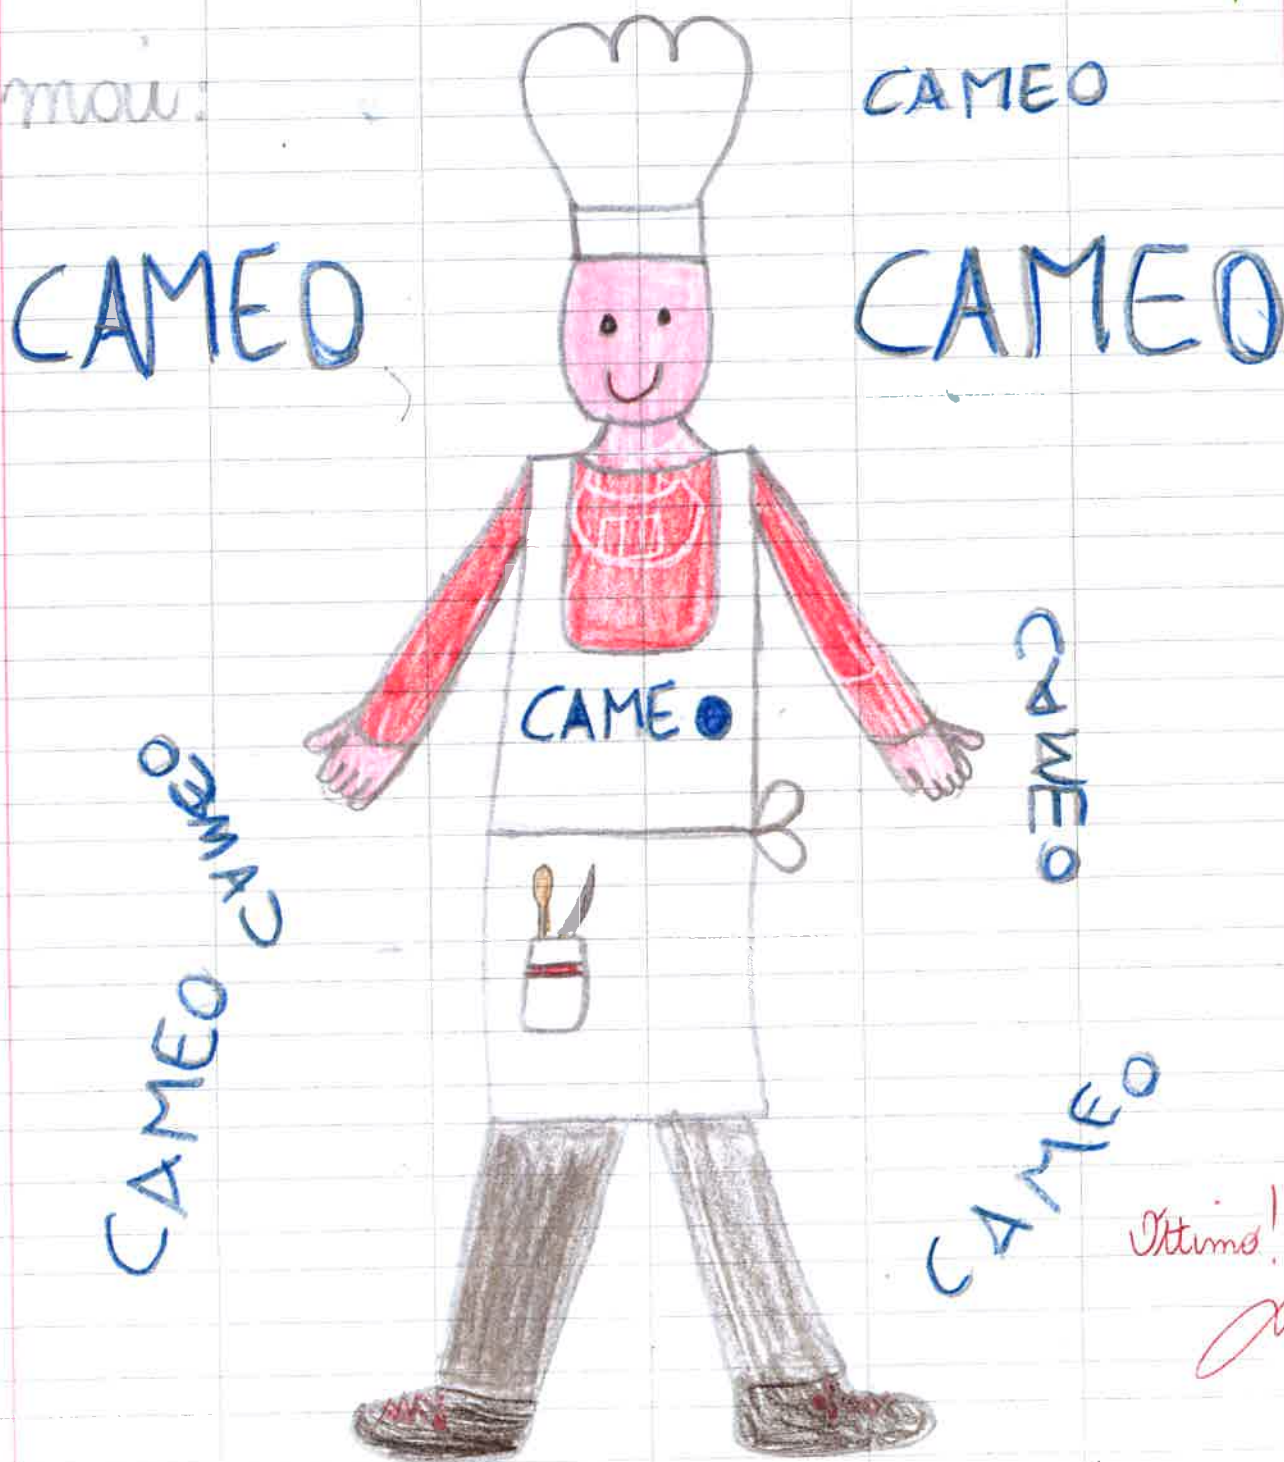 mai:
CAMEO
CAMEO
CAMEO
CAMEO
CAMEO
CAMEO
CAMEO
CAMEO
Ottimo!